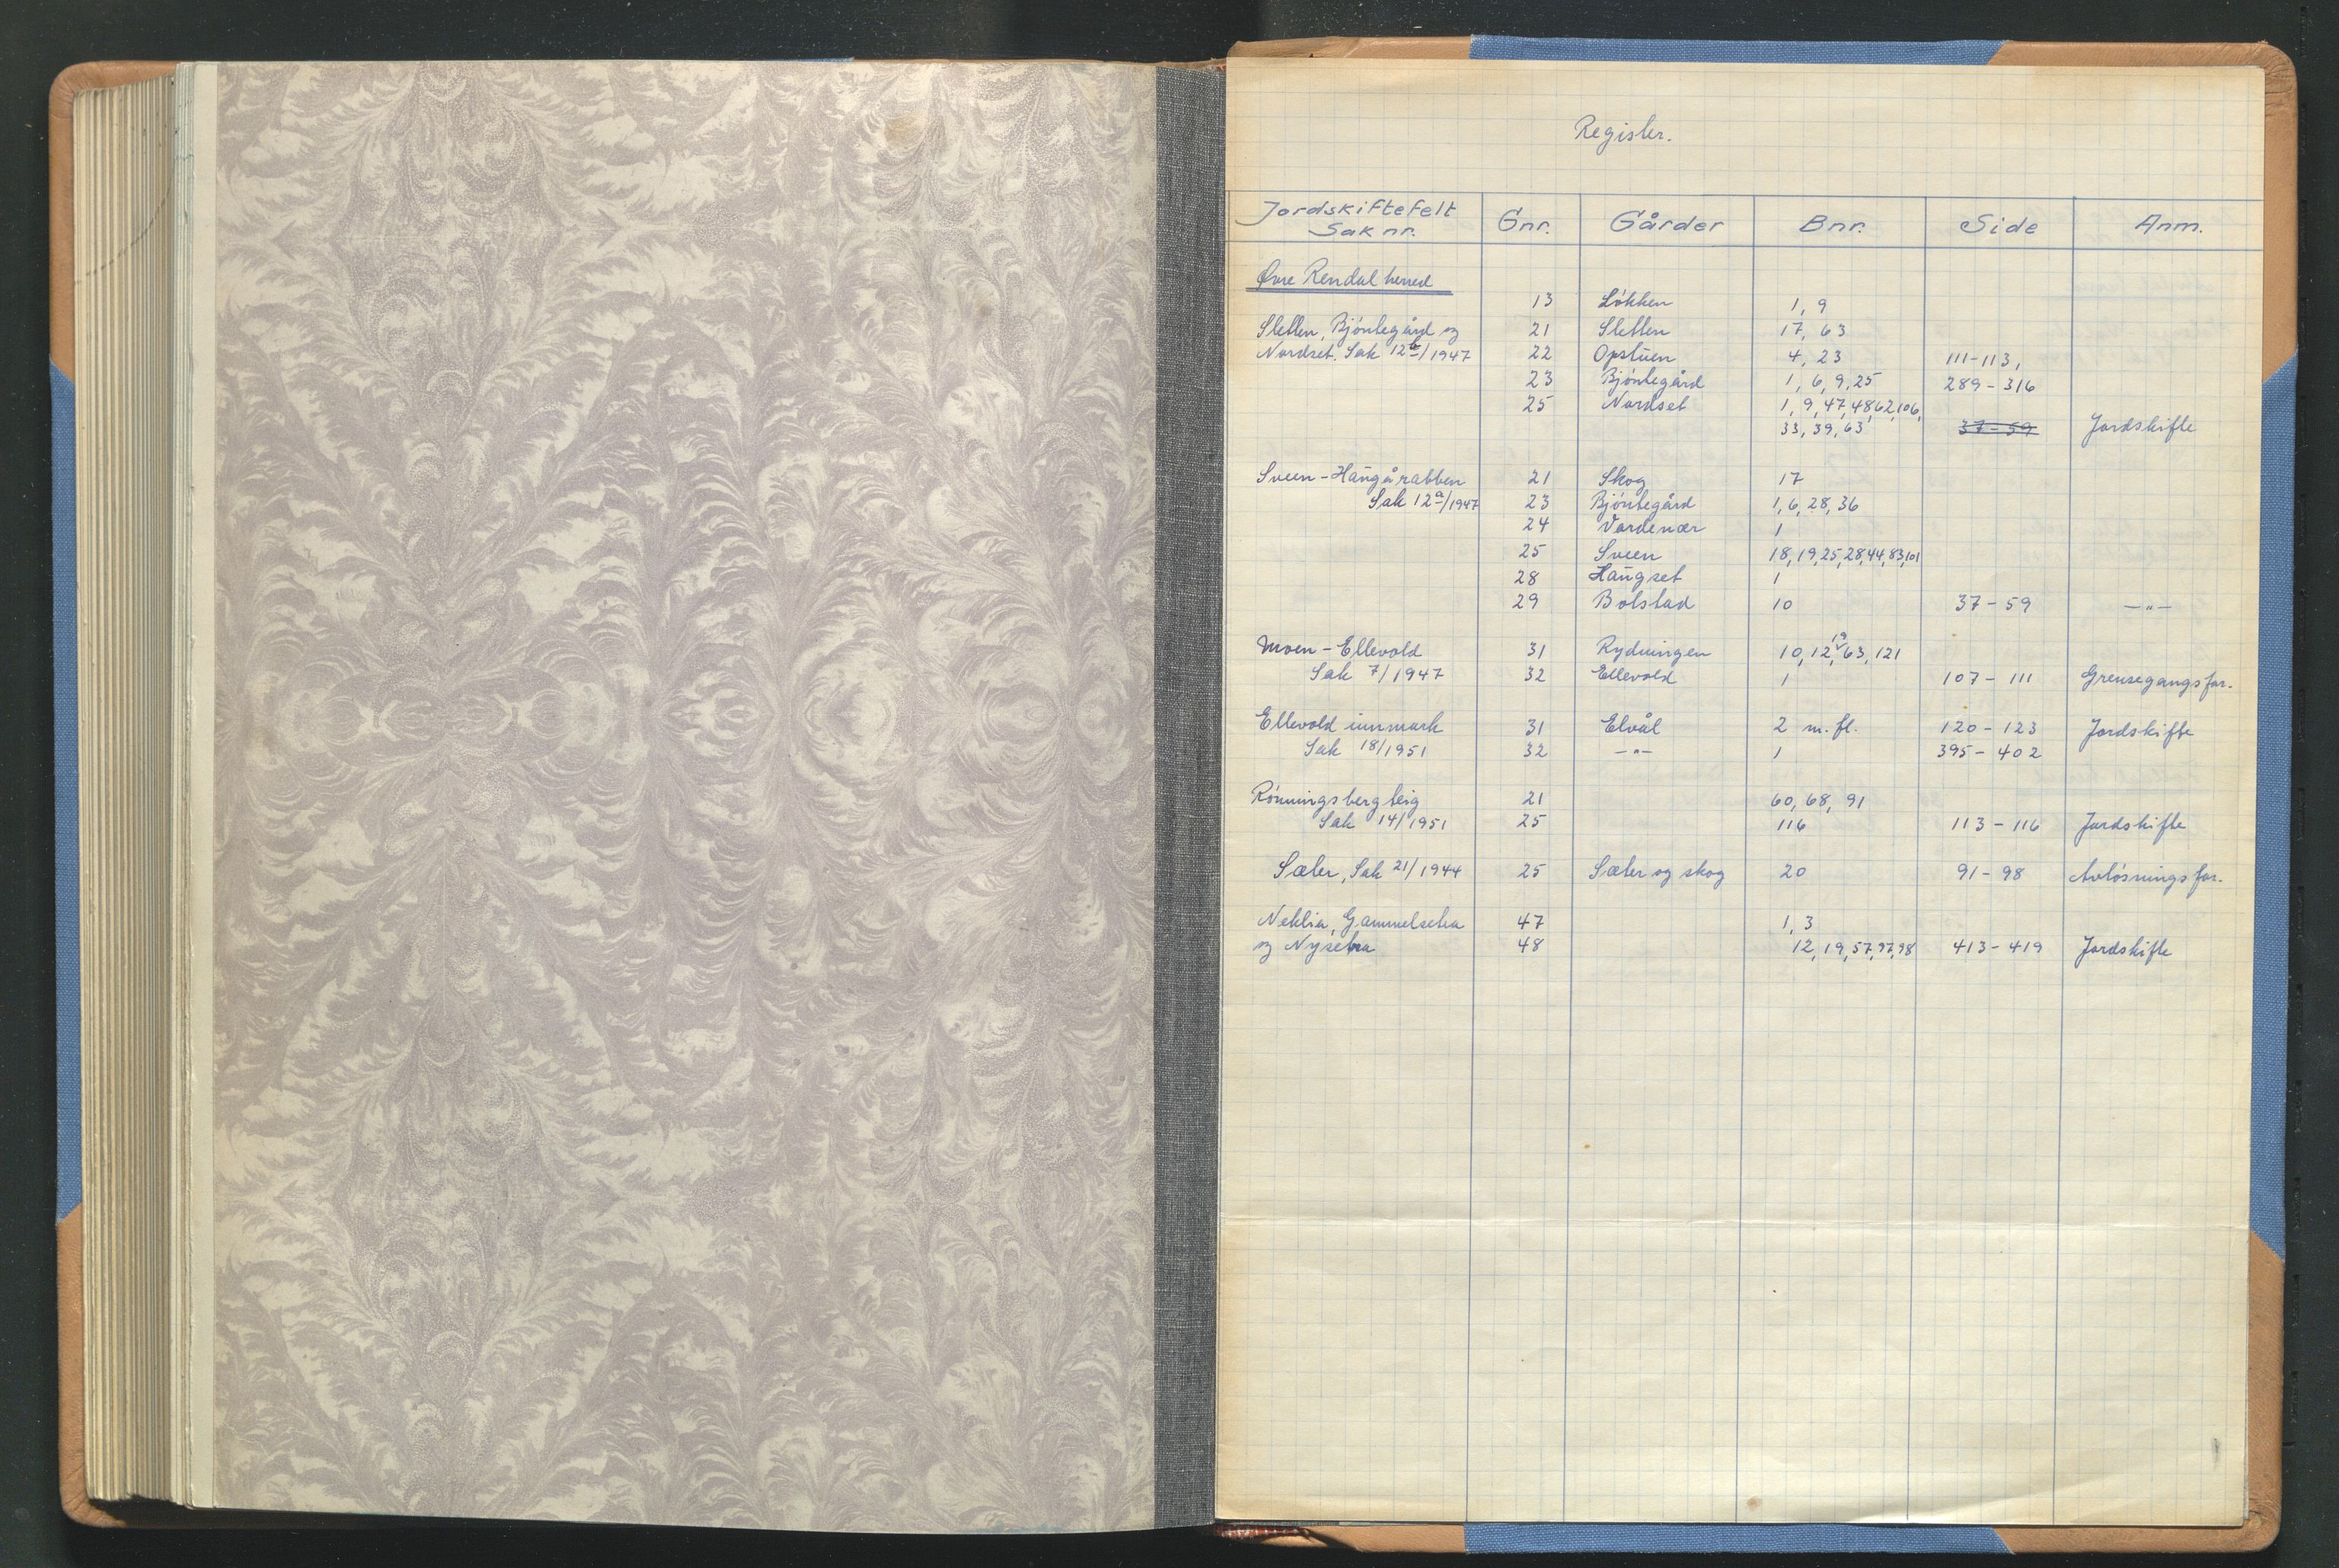 Register.
Jordskiftefelt Sak nr. Gnr. Gårder Bnr. Side Anm.
Øvre Rendal herred
13 Løkken 1, 9
Sletten, Bjøntegård og 21 Sletten 17, 63
Nordset. Sak 12b/1947 22 Opstuen 4, 23 111-113,
23 Bjøntegård 1, 6, 9, 25 289-316
25 Nordset 1, 9, 47, 48, 62, 106,
33, 39, 63 37-59 Jordskifte
Sveen-Haugårabben 21 Skog 17
Sak 12a/1947 23 Bjøntegård 1, 6, 28, 36
24 Vardenær 1
25 Sveen 18, 19, 25, 28, 44, 83, 101
28 Haugset 1
29 Bolstad 10 37-59 -"-
Moen-Ellevold 31 Rydningen 10, 12, 19, 63, 121
Sak 7/1947 32 Ellevold 1 107-111 Grensegangsfor.
Ellevold innmark 31 Elvål 2 m.fl. 120-123 Jordskifte
Sak 18/1951 32 -"- 1 395-402
Rønningsbergteig 21 60, 68, 91
Sak 14/1951 25 116 113-116 Jordskifte
Sæter, Sak 21/1944 25 Sæter og skog 20 91-98 Avløsningsfor.
Neklia, Gammelsetra 47 1, 3
og Nysetra 48 12, 19, 57, 97, 98 413-419 Jordskifte